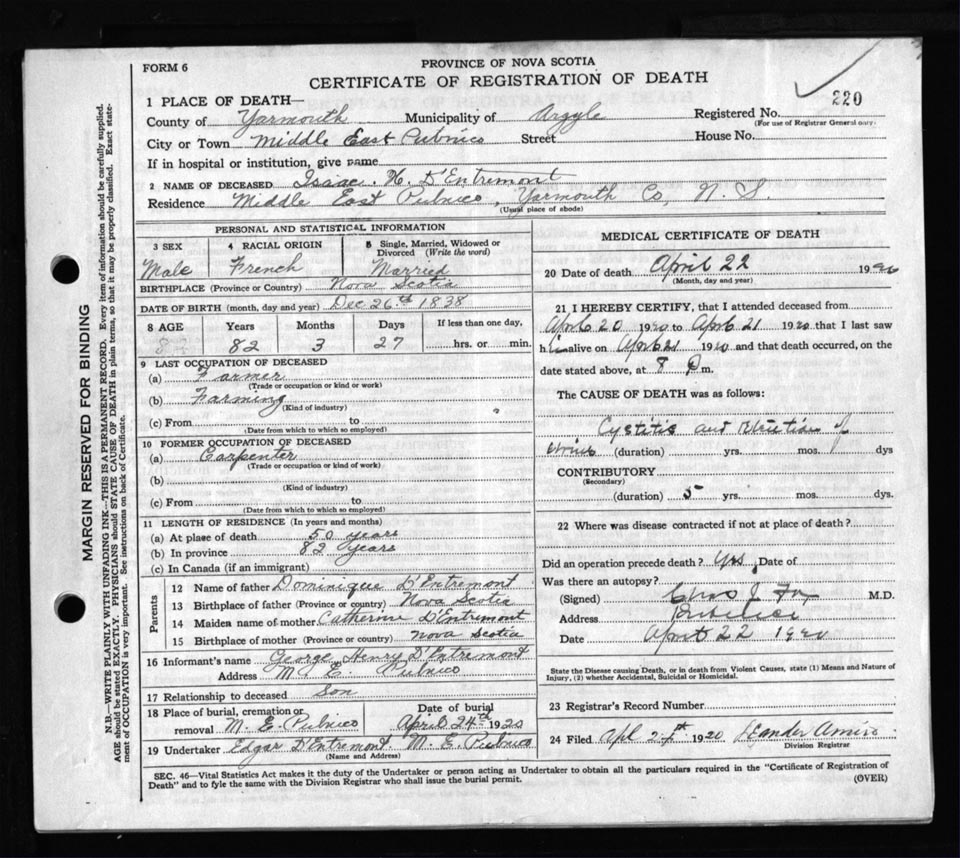 FORM 6
PROVINCE OF NOVA SCOTIA
CERTIFICATE OF REGISTRATION OF DEATH
1 PLACE OF DEATH—
County of Yarmouth Municipality of Argyle Registered No. 220
(For use of Registrar General only.
City or Town Middle East Pubnico Street House No.
If in hospital or institution, give name
2 NAME OF DECEASED Isaac. H. D'Entremont
Residence Middle East Pubnico, Yarmouth Co, N. S.
(Usual place of abode)
PERSONAL AND STATISTICAL INFORMATION
3 SEX 4 RACIAL ORIGIN 5 Single, Married, Widowed or Divorced (Write the word)
Male French Married
BIRTHPLACE (Province or Country) Nova Scotia
DATE OF BIRTH (month, day and year) Dec 26th 1838
8 AGE Years Months Days If less than one day,
82 3 27 hrs. or min.
9 LAST OCCUPATION OF DECEASED
(a) Farmer
(Trade or occupation or kind or work)
(b) Farming
(Kind of industry)
(c) From to
(Date from which to which so employed)
10 FORMER OCCUPATION OF DECEASED
(a) Carpenter
(Trade or occupation or kind of work)
(b)
(Kind of industry)
(c) From to
(Date from which to which so employed)
11 LENGTH OF RESIDENCE (In years and months)
(a) At place of death 50 years
(b) In province 82 years
(c) In Canada (if an immigrant)
Parents
12 Name of father Dominique D'Entremont
13 Birthplace of father (Province or country) Nova Scotia
14 Maiden name of mother Catherine D'Entremont
15 Birthplace of mother (Province or country) Nova Scotia
16 Informant's name George Henry D'Entremont
Address M. E. Pubnico
17 Relationship to deceased Son
18 Place of burial, cremation or removal M. E. Pubnico
Date of burial April 24th 1920
19 Undertaker Edgar D'Entremont. M. E. Pubnico
(Name and Address)
MEDICAL CERTIFICATE OF DEATH
20 Date of death April 22 1920
(Month, day and year)
21 I HEREBY CERTIFY, that I attended deceased from
April 20 1920 to April 21 1920 that I last saw
him alive on April 21 1920 and that death occurred, on the
date stated above, at 8 P m.
The CAUSE OF DEATH was as follows:
Cystitis and of
(duration) yrs. mos. dys
CONTRIBUTORY
(Secondary)
(duration) 5 yrs. mos. dys.
22 Where was disease contracted if not at place of death?
Did an operation precede death? Yes, Date of
Was there an autopsy?
(Signed) Chas J. Fox M.D.
Address Pubnico
Date April 22 1920
State the Disease causing Death, or in death from Violent Causes, state (1) Means and Nature of
Injury, (2) whether Accidental, Suicidal or Homicidal.
23 Registrar's Record Number
24 Filed Apl 1920 Leander Amiro
Division Registrar
SEC. 46—Vital Statistics Act makes it the duty of the Undertaker or person acting as Undertaker to obtain all the particulars required in the "Certificate of Registration of
Death" and to fyle the same with the Division Registrar who shall issue the burial permit. (OVER)
MARGIN RESERVED FOR BINDING
N.B.—WRITE PLAINLY WITH UNFADING INK—THIS IS A PERMANENT RECORD. Every item of information should be carefully supplied.
AGE should be stated EXACTLY. PHYSICIANS should STATE CAUSE OF DEATH in plain terms, so that it may be properly classified. Exact state-
ment of OCCUPATION is very important. See instructions on back of Certificate.